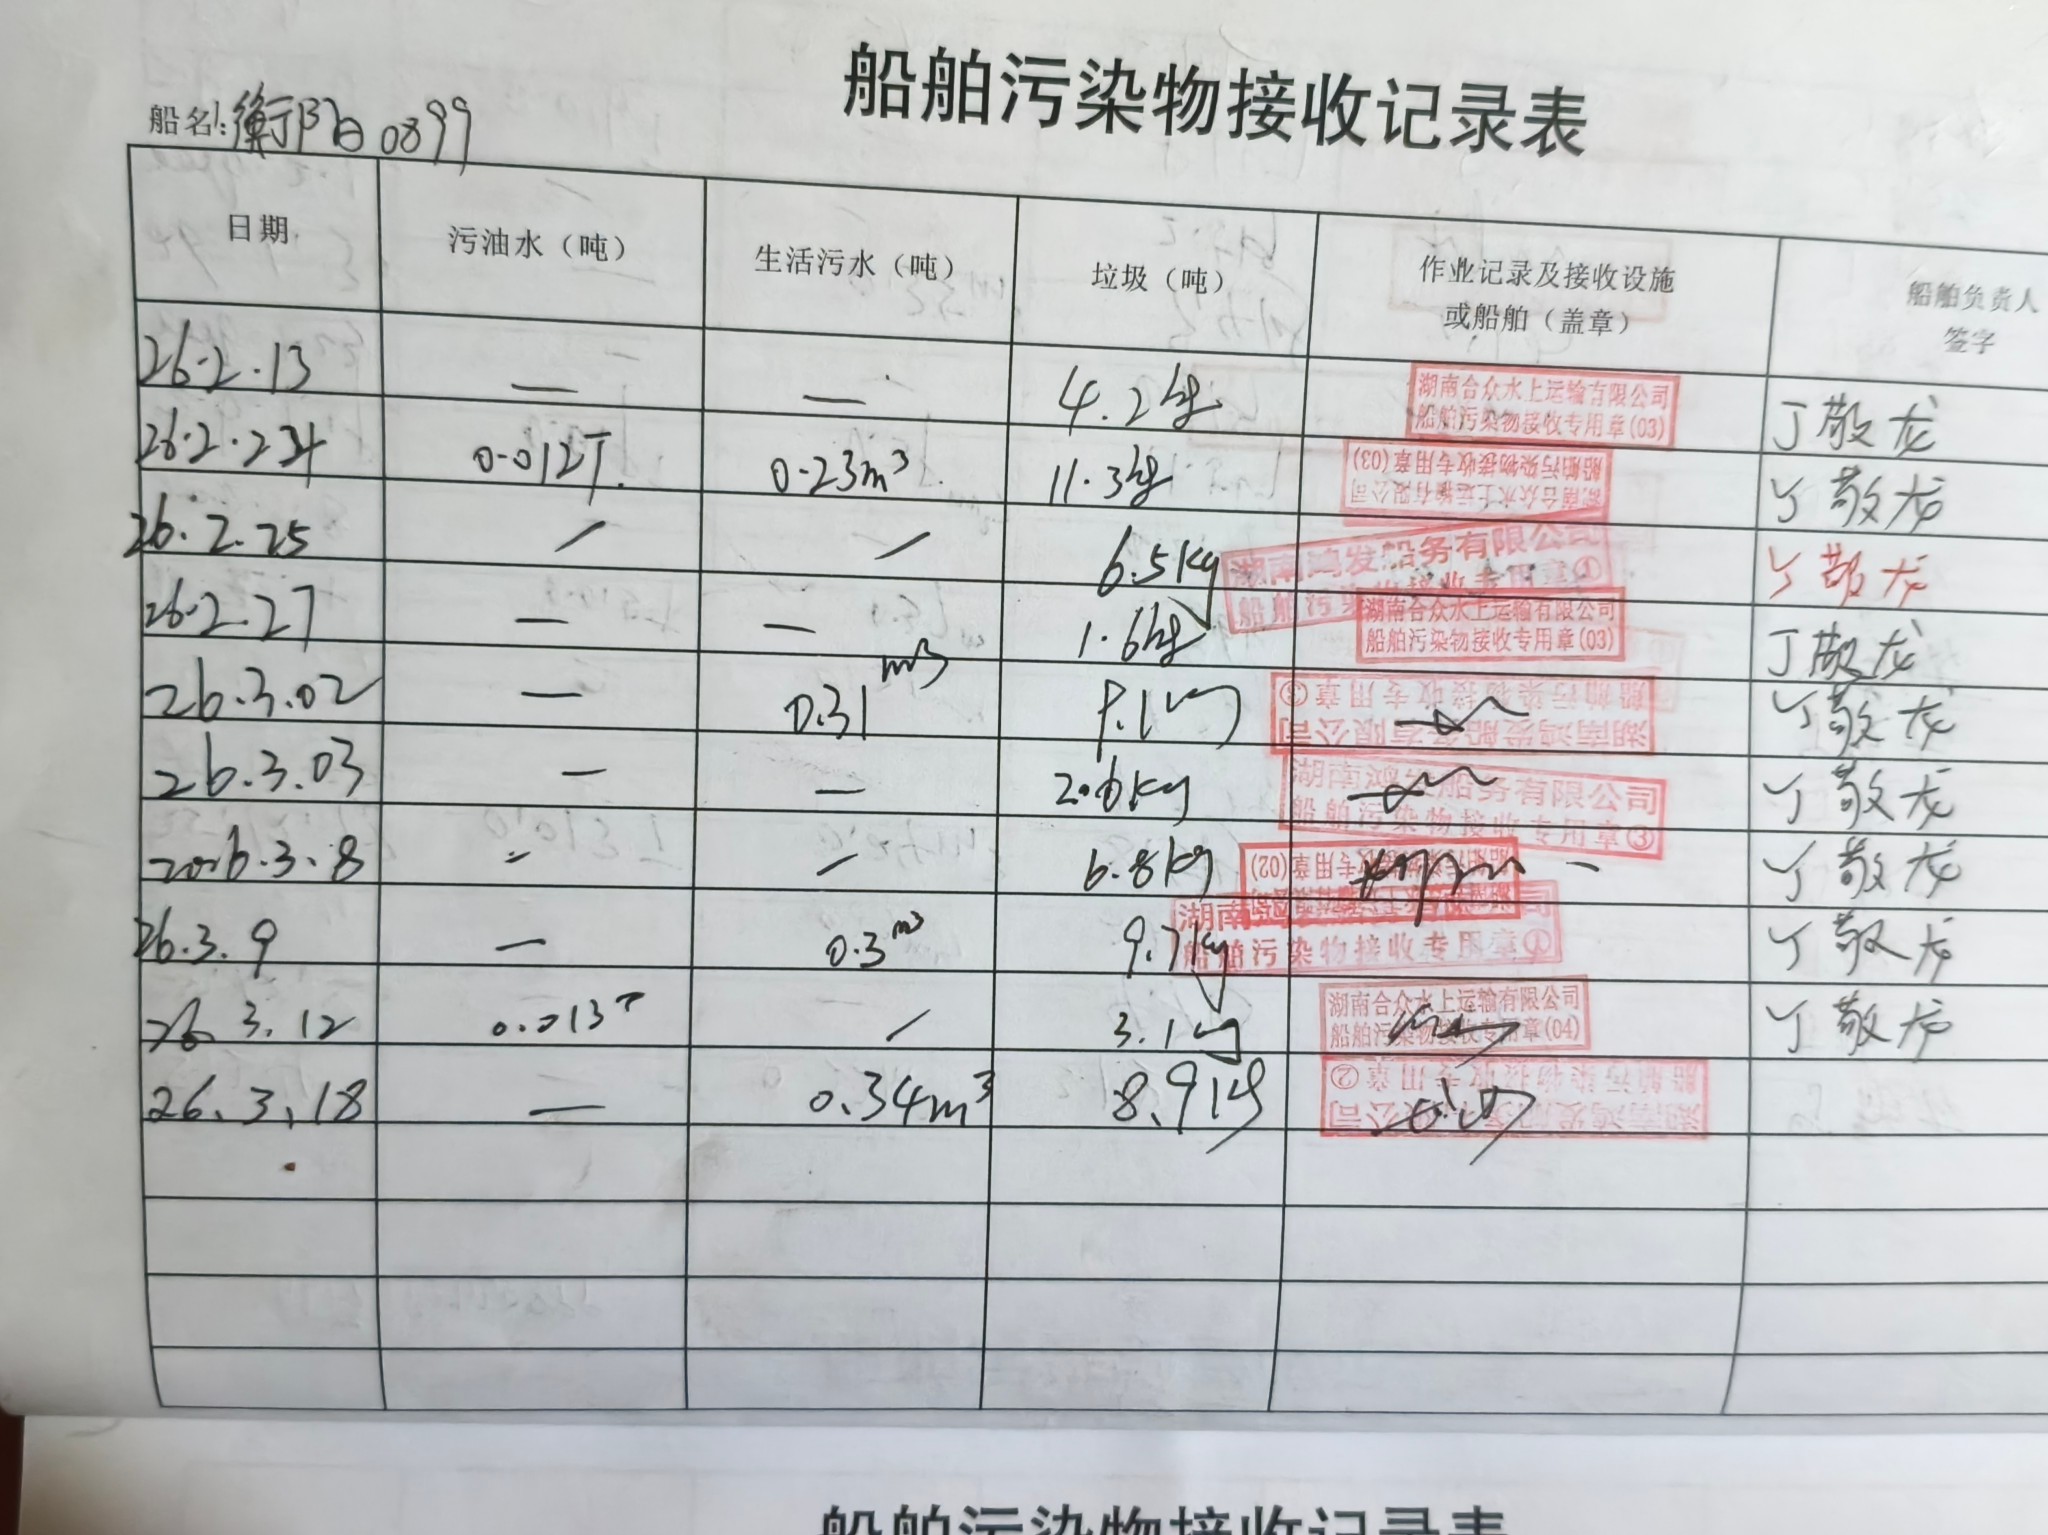 船舶污染物接收记录表
船名:衡阳0899
日期 污油水（吨） 生活污水（吨） 垃圾（吨） 作业记录及接收设施或船舶（盖章） 船舶负责人签字
26.2.13 — — 4.2kg 湖南合众水上运输有限公司 船舶污染物接收专用章(03) 丁敬龙
26.2.24 0.012T. 0.23m³ 11.3kg 湖南合众水上运输有限公司 船舶污染物接收专用章(03) 丁敬龙
26.2.25 / / 6.5kg 湖南鸿发船务有限公司 船舶污染物接收专用章① 丁敬龙
26.2.27 — — 1.6kg 湖南合众水上运输有限公司 船舶污染物接收专用章(03) 丁敬龙
26.3.02 — 0.31m³ 湖南鸿发船务有限公司 船舶污染物接收专用章③ 丁敬龙
26.3.03 — — 2.6kg 湖南鸿发船务有限公司 船舶污染物接收专用章③ 丁敬龙
2026.3.8 - / 6.8kg 船舶污染物接收专用章(02) 丁敬龙
26.3.9 — 0.3m³ 9.7kg 船舶污染物接收专用章① 丁敬龙
26.3.12 0.013T / 3.1kg 湖南合众水上运输有限公司 船舶污染物接收专用章(04) 丁敬龙
26.3.18 — 0.34m³ 8.9kg 湖南鸿发船务有限公司 船舶污染物接收专用章②
船舶污染物接收记录表